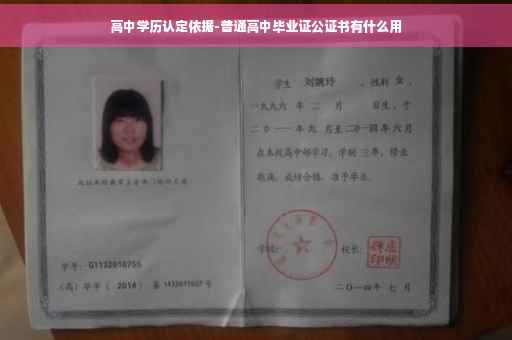 高中学历认定依据-普通高中毕业证公证书有什么用
学生 刘婉玲 ，性别 女 ，
一九九六 年 二 月 日生，于
二〇一一 年 九 月至 二〇一四 年 六 月
在本校高中部学习，学制 三 年，修业
期满，成绩合格，准予毕业。
学校： 校长：
二〇一四年 七 月
学号： G1132010755
（高）毕字（ 2014 ）第 1432011007 号